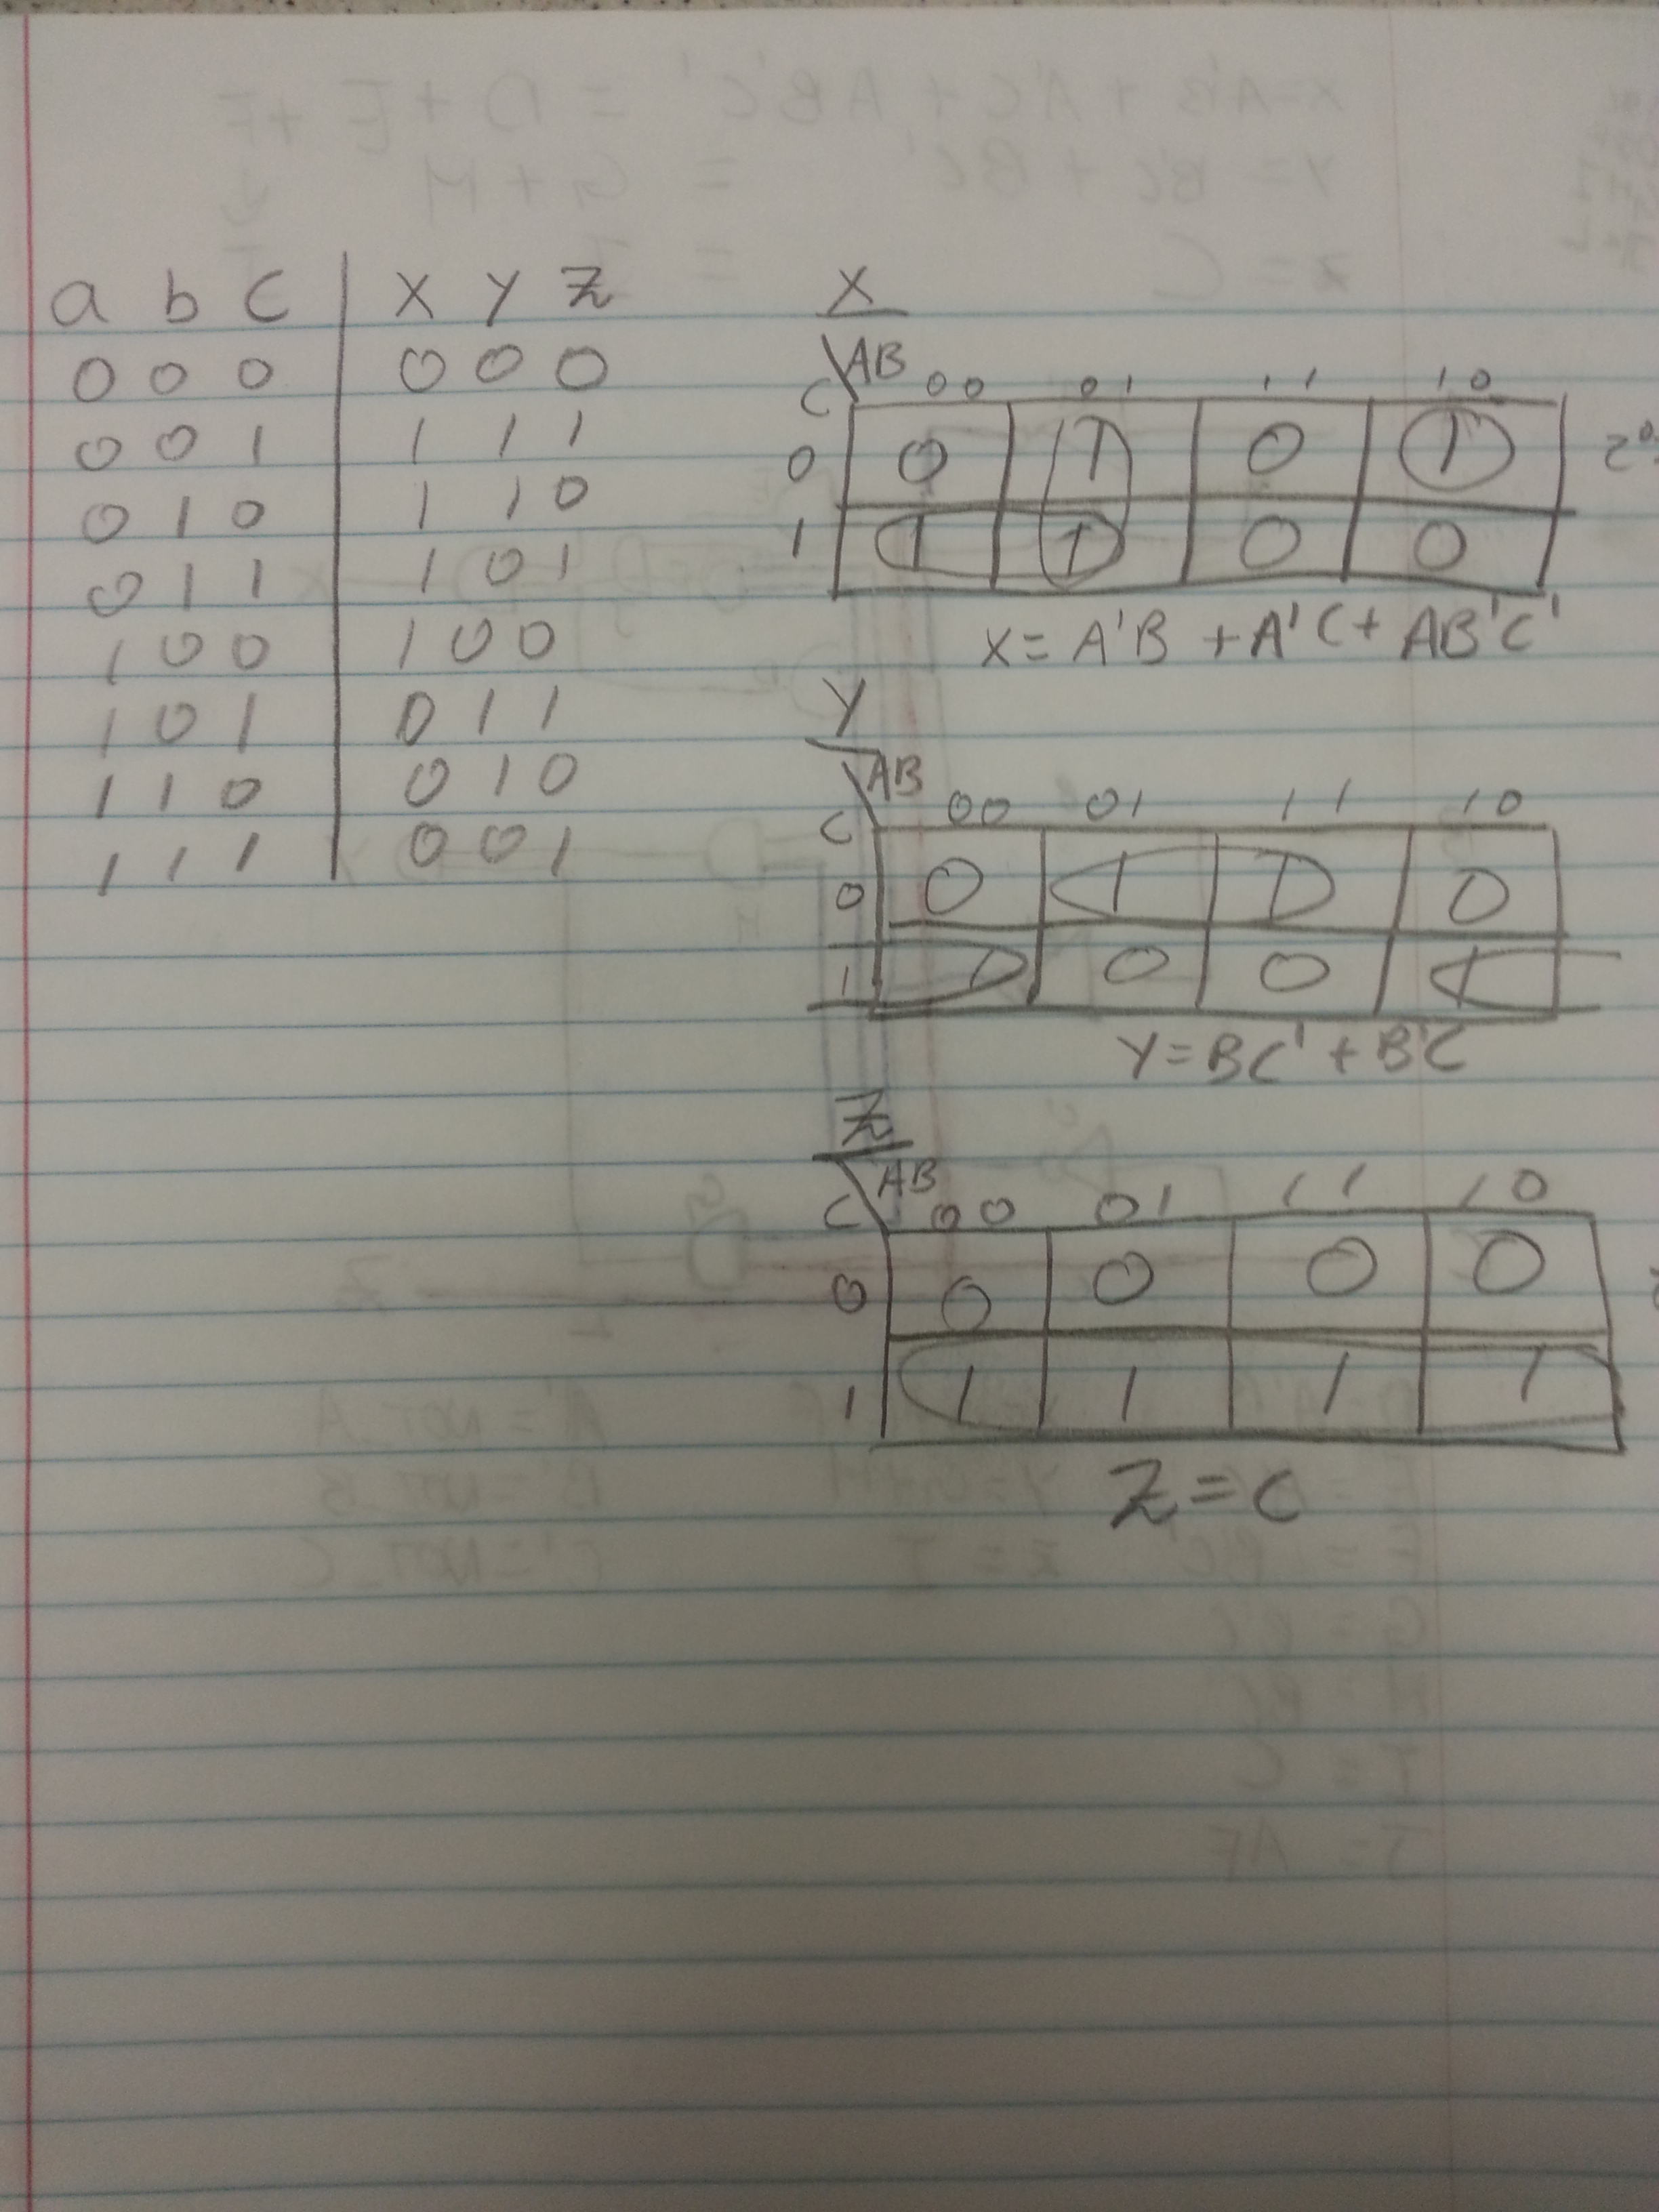 a b c x y z
0 0 0 0 0 0
0 0 1 1 1 1
0 1 0 1 1 0
0 1 1 1 0 1
1 0 0 1 0 0
1 0 1 0 1 1
1 1 0 0 1 0
1 1 1 0 0 1
X
AB
C 00 01 11 10
0 0 1 0 1
1 1 1 0 0
X = A'B + A'C + AB'C'
Y
AB
C 00 01 11 10
0 0 1 1 0
1 1 0 0 1
Y = BC' + B'C
Z
AB
C 00 01 11 10
0 0 0 0 0
1 1 1 1 1
Z = C